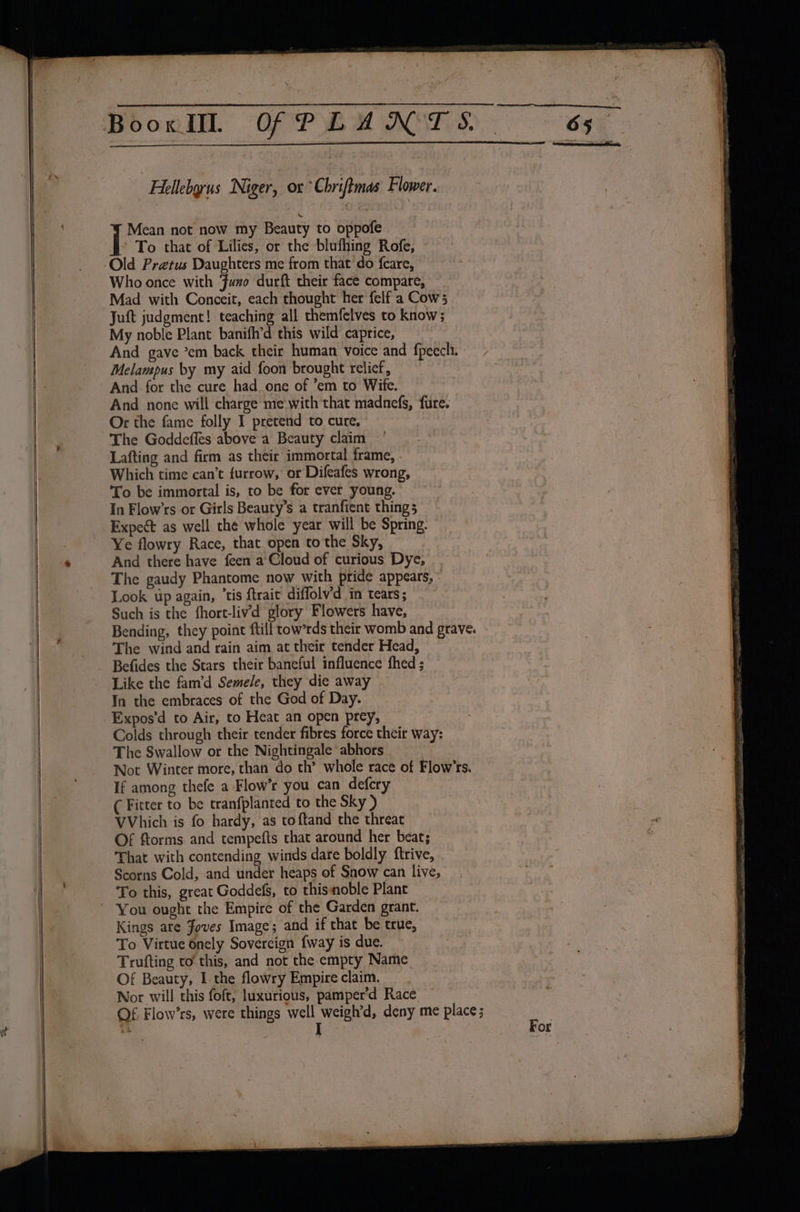 Book III. Of PLANTS. 65
Hellebgrus Niger, or Chriſtmas Flower.
I Mean not now my Beauty to oppoſe
To that of Lilies, or the bluſhing Roſe,
Old Prætus Daughters me from that do ſcare,
Who once with Juno durſt their face compare,
Mad with Conceit, each thought her ſelf a Cow;
Juſt judgment! teaching all themſelves to know;
My noble Plant baniſh'd this wild caprice,
And gave 'em back their human voice and ſpeech.
Melampus by my aid ſoon brought relief,
And for the cure had one of 'em to Wife.
And none will charge me with that madneſs, ſure.
Or the ſame folly I pretend to cure.
The Goddeſſes above a Beauty claim
Laſting and firm as their immortal frame,
Which time can't furrow, or Diſeaſes wrong,
To be immortal is, to be for ever young.
In Flow'rs or Girls Beauty's a tranſient thing;
Expect as well the whole year will be Spring.
Ye flowry Race, that open to the Sky,
And there have ſeen a Cloud of curious Dye,
The gaudy Phantome now with pride appears,
Look up again, 'tis ſtrait diſſolv'd in tears;
Such is the ſhort-liv'd glory Flowers have,
Bending, they point ſtill tow'rds their womb and grave.
The wind and rain aim at their tender Head,
Beſides the Stars their baneful influence ſhed;
Like the fam'd Semele, they die away
In the embraces of the God of Day.
Expos'd to Air, to Heat an open prey,
Colds through their tender fibres force their way:
The Swallow or the Nightingale abhors
Not Winter more, than do th' whole race of Flow'rs.
If among theſe a Flow'r you can deſcry
( Fitter to be tranſplanted to the Sky )
VVhich is ſo hardy, as to ſtand the threat
Of ſtorms and tempeſts that around her beat;
That with contending winds dare boldly ſtrive,
Scorns Cold, and under heaps of Snow can live,
To this, great Goddeſs, to this noble Plant
You ought the Empire of the Garden grant.
Kings are Joves Image; and if that be true,
To Virtue onely Sovereign ſway is due.
Truſting to this, and not the empty Name
Of Beauty, I the flowry Empire claim.
Nor will this ſoft, luxurious, pamper'd Race
Of Flow'rs, were things well weigh'd, deny me place;
I For